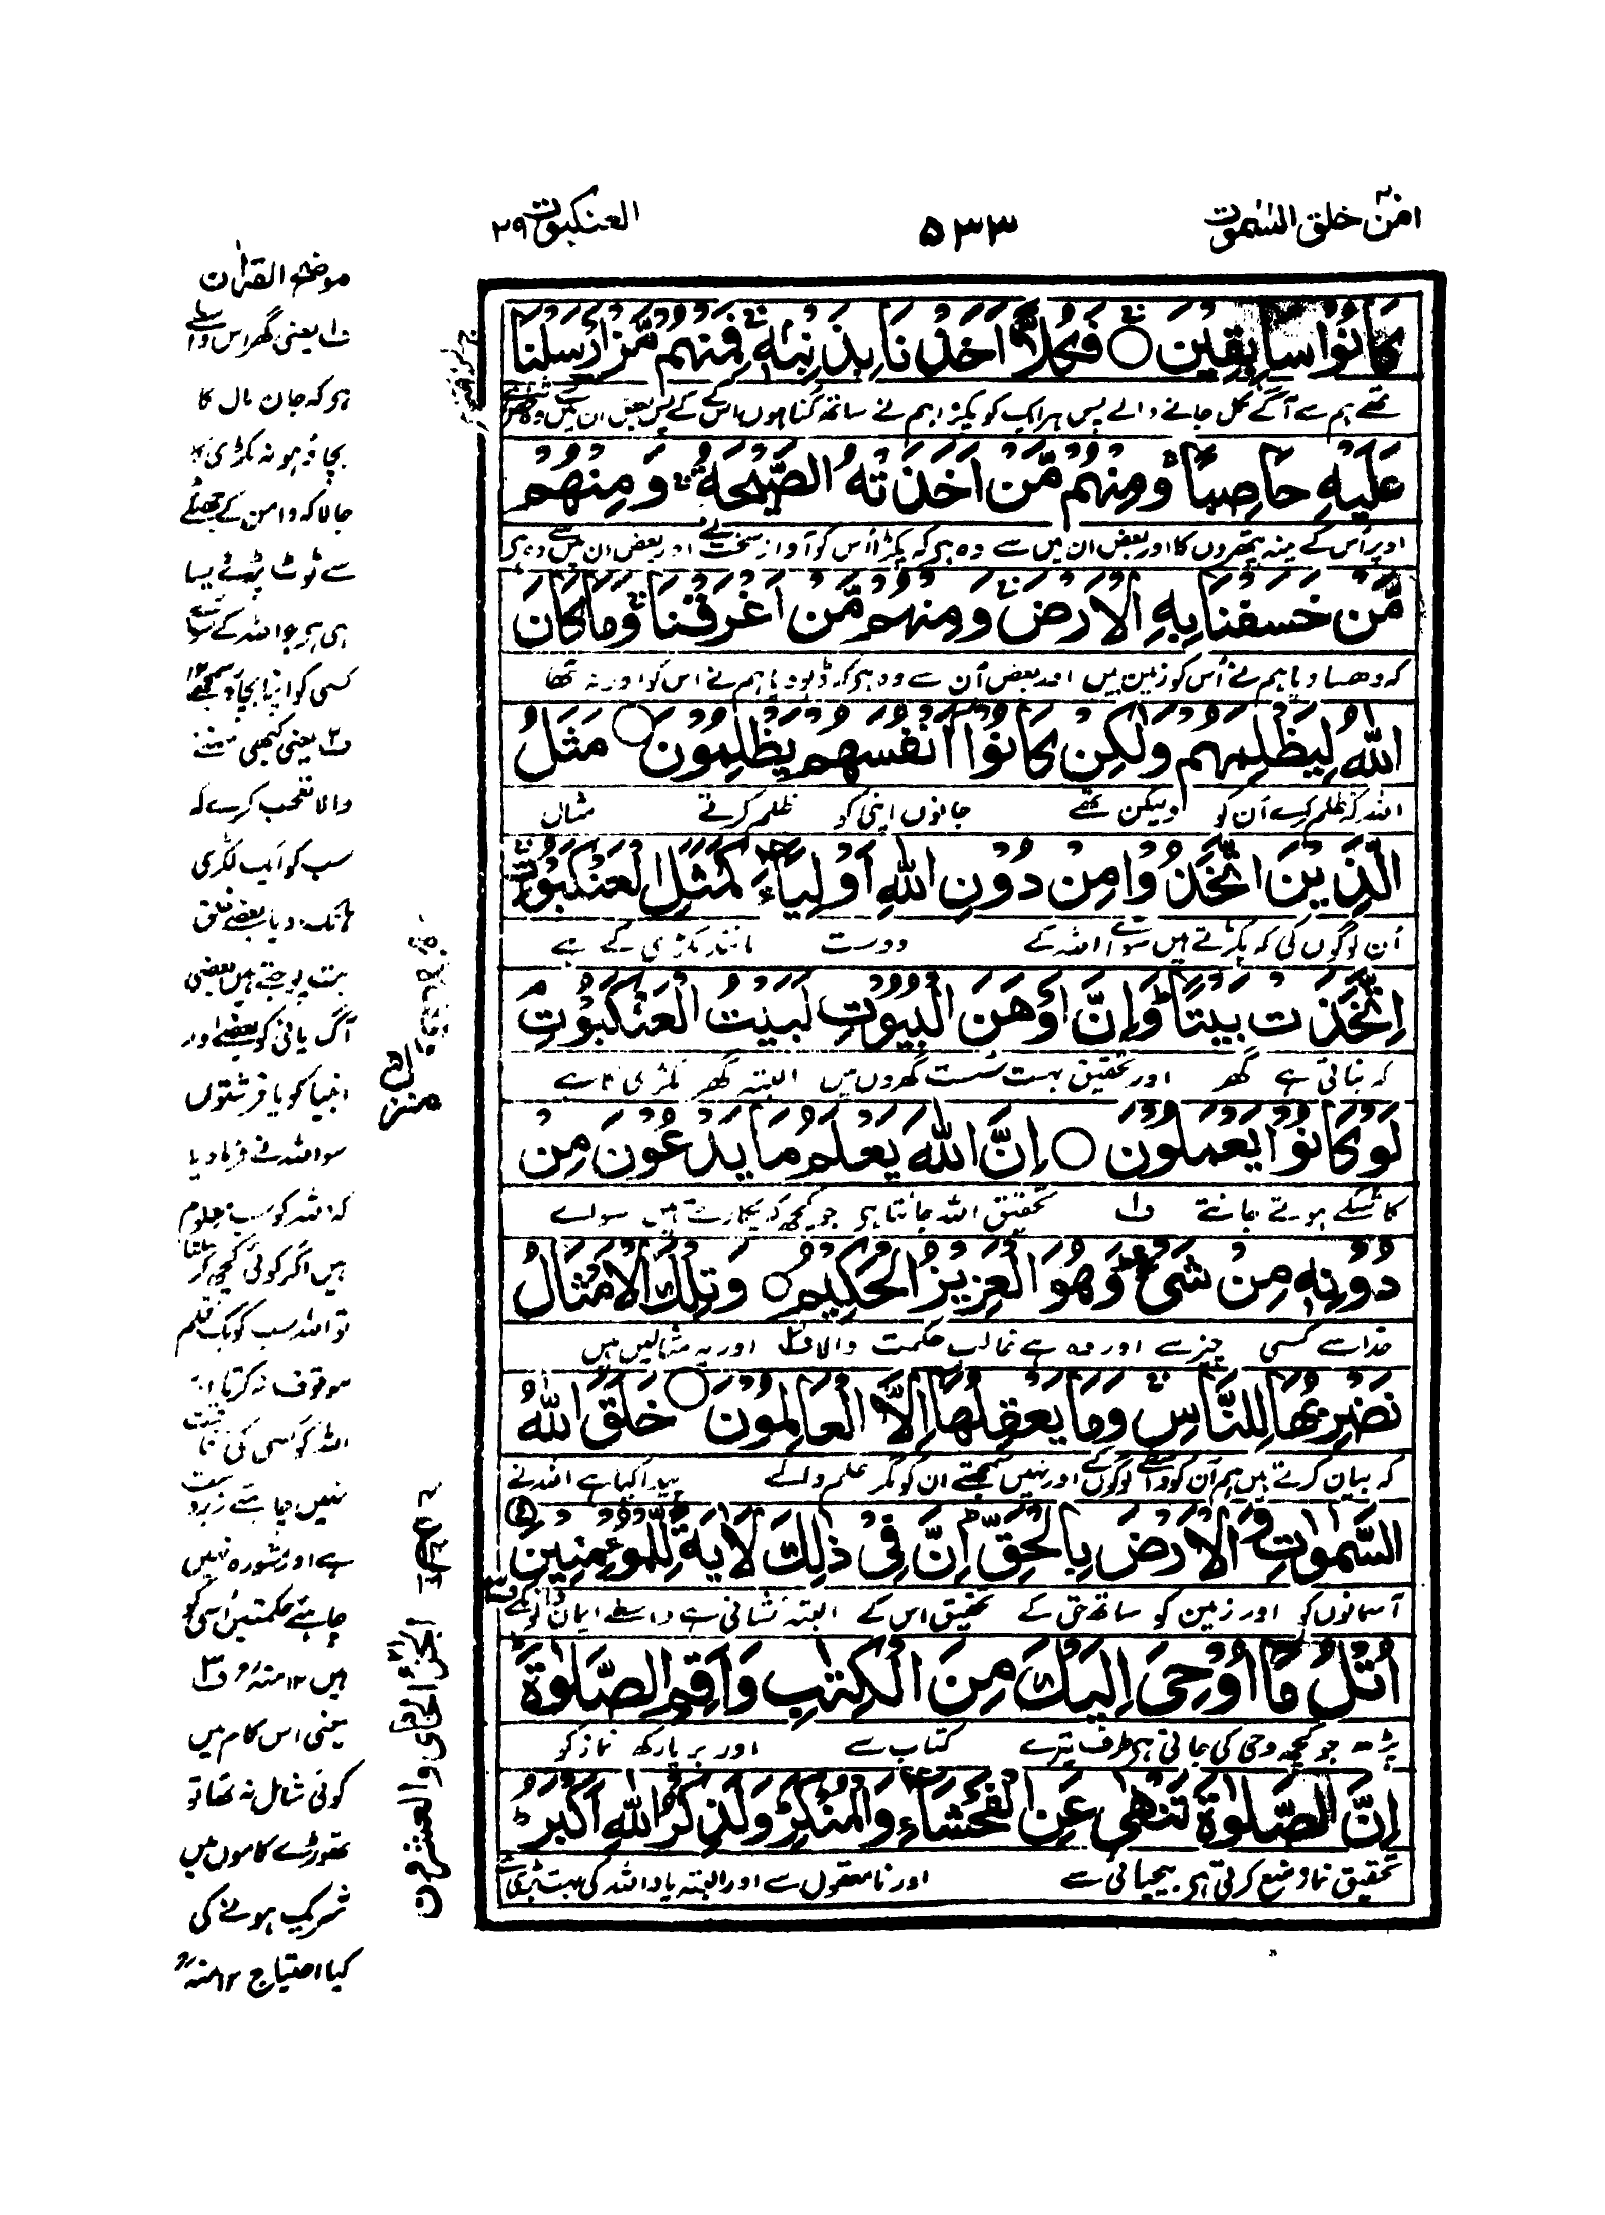 امن خلق السمٰوٰت
۵۳۳
العنکبوت ۲۹
كَانُوْا سَابِقِيْنَ ○ فَكُلًّا اَخَذْنَا بِذَنْۢبِهٖ ۚ فَمِنْهُمْ مَّنْ اَرْسَلْنَا
تھے ہم سے آگے نکل جانے والے پس ہر ایک کو پکڑا ہم نے ساتھ گناہوں اس کے کے پس بعض ان میں وہ
عَلَيْهِ حَاصِبًا ۚ وَمِنْهُمْ مَّنْ اَخَذَتْهُ الصَّيْحَةُ ۚ وَمِنْهُمْ
اوپر اُس کے مینہ پتھروں کا اور بعض ان میں سے وہ ہی کہ پکڑا اُس کو آواز سخت نے اور بعض ان میں سے وہ ہی
مَّنْ خَسَفْنَا بِهِ الْاَرْضَ ۚ وَمِنْهُمْ مَّنْ اَغْرَقْنَا ۚ وَمَا كَانَ
کہ دھسا دیا ہم نے اُس کو زمین میں اور بعض اُن سے وہ ہی کہ ڈبو دیا ہم نے اس کو اور نہ تھا
اللّٰهُ لِيَظْلِمَهُمْ وَلٰكِنْ كَانُوْۤا اَنْفُسَهُمْ يَظْلِمُوْنَ ○ مَثَلُ
اللہ کہ ظلم کرے اُن کو ولیکن تھے جانوں اپنی کو ظلم کرتے مثال
الَّذِيْنَ اتَّخَذُوْا مِنْ دُوْنِ اللّٰهِ اَوْلِيَآءَ كَمَثَلِ الْعَنْكَبُوْتِ
اُن لوگوں کی کہ پکڑتے ہیں سوائے اللہ کے دوست مانند مکڑی کے ہے
اِتَّخَذَتْ بَيْتًا ؕ وَاِنَّ اَوْهَنَ الْبُيُوْتِ لَبَيْتُ الْعَنْكَبُوْتِ ۘ
کہ بناتی ہے گھر اور تحقیق بہت سُست گھروں میں البتہ گھر مکڑی کا ہے
لَوْ كَانُوْا يَعْلَمُوْنَ ○ اِنَّ اللّٰهَ يَعْلَمُ مَا يَدْعُوْنَ مِنْ
کاشکے ہوتے جانتے ف۱ تحقیق اللہ جانتا ہی جو کچھ کہ پکارتے ہیں سوائے
دُوْنِهٖ مِنْ شَىْءٍ ؕ وَهُوَ الْعَزِيْزُ الْحَكِيْمُ ○ وَتِلْكَ الْاَمْثَالُ
خدا سے کسی چیز سے اور وہ ہے غالب حکمت والا ف۲ اور یہ مثالیں ہیں
نَضْرِبُهَا لِلنَّاسِ ۚ وَمَا يَعْقِلُهَاۤ اِلَّا الْعَالِمُوْنَ ○ خَلَقَ اللّٰهُ
کہ بیان کرتے ہیں ہم اُن کو واسطے لوگوں کے اور نہیں سمجھتے ان کو مگر علم والے پیدا کیا ہے اللہ نے
السَّمٰوٰتِ وَالْاَرْضَ بِالْحَقِّ ؕ اِنَّ فِىْ ذٰلِكَ لَاٰيَةً لِّلْمُؤْمِنِيْنَ
آسمانوں کو اور زمین کو ساتھ حق کے تحقیق اس کے البتہ نشانی ہے واسطے ایمان والوں کے
اُتْلُ مَاۤ اُوْحِىَ اِلَيْكَ مِنَ الْكِتٰبِ وَاَقِمِ الصَّلٰوةَ ؕ
پڑھ جو کچھ وحی کی جاتی ہی طرف تیرے کتاب سے اور برپا رکھ نماز کو
اِنَّ الصَّلٰوةَ تَنْهٰى عَنِ الْفَحْشَآءِ وَالْمُنْكَرِ ؕ وَلَذِكْرُ اللّٰهِ اَكْبَرُ ؕ
تحقیق نماز منع کرتی ہی بیحیائی سے اور نامعقول سے اور البتہ یاد اللہ کی بہت بڑی
موضح القرآن
ف۱ یعنی گھر اس واسطے
ہی کہ جان مال کا
بچاؤ ہو نہ مکڑی کا
جالا کہ دامن کے جھٹکے
سے ٹوٹ پڑے ایسا
ہی ہی جو اللہ کے سوائے
کسی کو اپنا بچاؤ سمجھے ۱۲
ف۲ یعنی کبھی سننے
والا تعجب کرے کہ
سب کو ایک لکڑی
ہانک دیا بعضے خلق
بت پوجتے ہیں بعضی
آگ پانی کو بعضے اور
انبیا کو یا فرشتوں
سو اللہ نے فرما دیا
کہ اللہ کو سب معلوم
ہیں اگر کوئی کچھ کر سکتا
تو اللہ سب کو یک قلم
موقوف نہ کرتا اور
اللہ کو کسی کی رفاقت
نہیں چاہئے زبردست
ہے اور مشورہ نہیں
چاہئے حکمتیں اسی کو
ہیں ۱۲ منہ رح ف۳
یعنی اس کام میں
کوئی شامل نہ تھا تو
تھوڑے کاموں میں
شریک ہونے کی
کیا احتیاج ۱۲ منہ رح
منزل
الجزء الحادی والعشرون